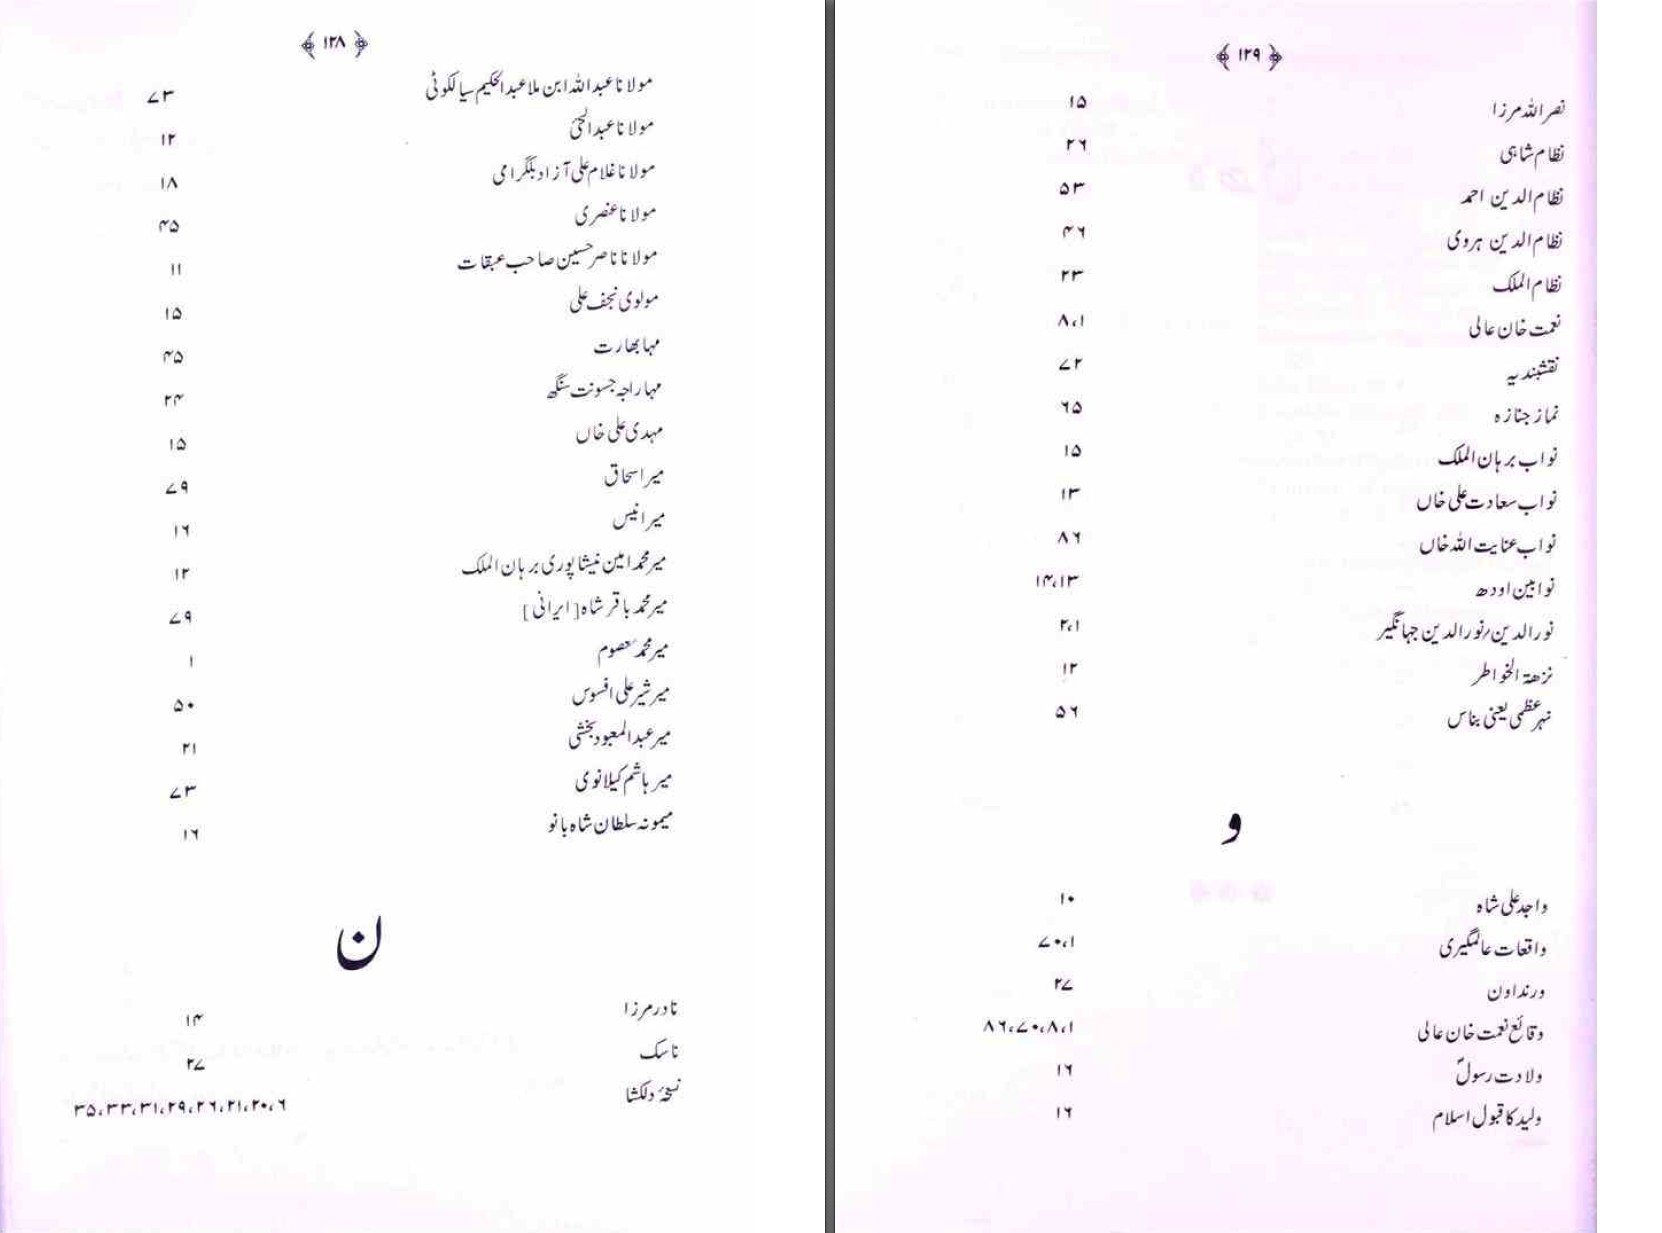 ﴿۱۲۸﴾
مولانا عبد اللہ ابن ملا عبد الحکیم سیالکوٹی ۷۳
مولانا عبد الحئی ۱۲
مولانا غلام علی آزاد بلگرامی ۱۸
مولانا عنصری ۴۵
مولانا ناصر حسین صاحب عبقات ۱۱
مولوی نجف علی ۱۵
مہابھارت ۴۵
مہاراجہ جسونت سنگھ ۲۴
مہدی علی خاں ۱۵
میر اسحاق ۷۹
میر انیس ۱۶
میر محمد امین نیشاپوری برہان الملک ۱۲
میر محمد باقر شاہ [ایرانی] ۷۹
میر محمد معصوم ۱
میر شیر علی افسوس ۵۰
میر عبد المعبود بخشی ۲۱
میر ہاشم کیلانوی ۷۳
میمونہ سلطان شاہ بانو ۱۶
ن
نادر مرزا ۱۴
ناسک ۲۷
نسخۂ دلکشا ۶،۲۰،۲۱،۲۶،۲۹،۳۱،۳۳،۳۵
﴿۱۲۹﴾
نصر اللہ مرزا ۱۵
نظام شاہی ۲۶
نظام الدین احمد ۵۳
نظام الدین ہروی ۴۶
نظام الملک ۲۳
نعمت خان عالی ۱،۸
نقشبندیہ ۷۲
نماز جنازہ ۶۵
نواب برہان الملک ۱۵
نواب سعادت علی خاں ۱۳
نواب عنایت اللہ خاں ۸۶
نوابین اودھ ۱۳،۱۴
نور الدین/نور الدین جہانگیر ۱،۲
نزھۃ الخواطر ۱۲
نہر عظمی یعنی بناس ۵۶
و
واجد علی شاہ ۱۰
واقعات عالمگیری ۱،۷۰
ورنداون ۲۷
وقائع نعمت خان عالی ۱،۸،۷۰،۸۶
ولادت رسولؐ ۱۶
ولید کا قبول اسلام ۱۶